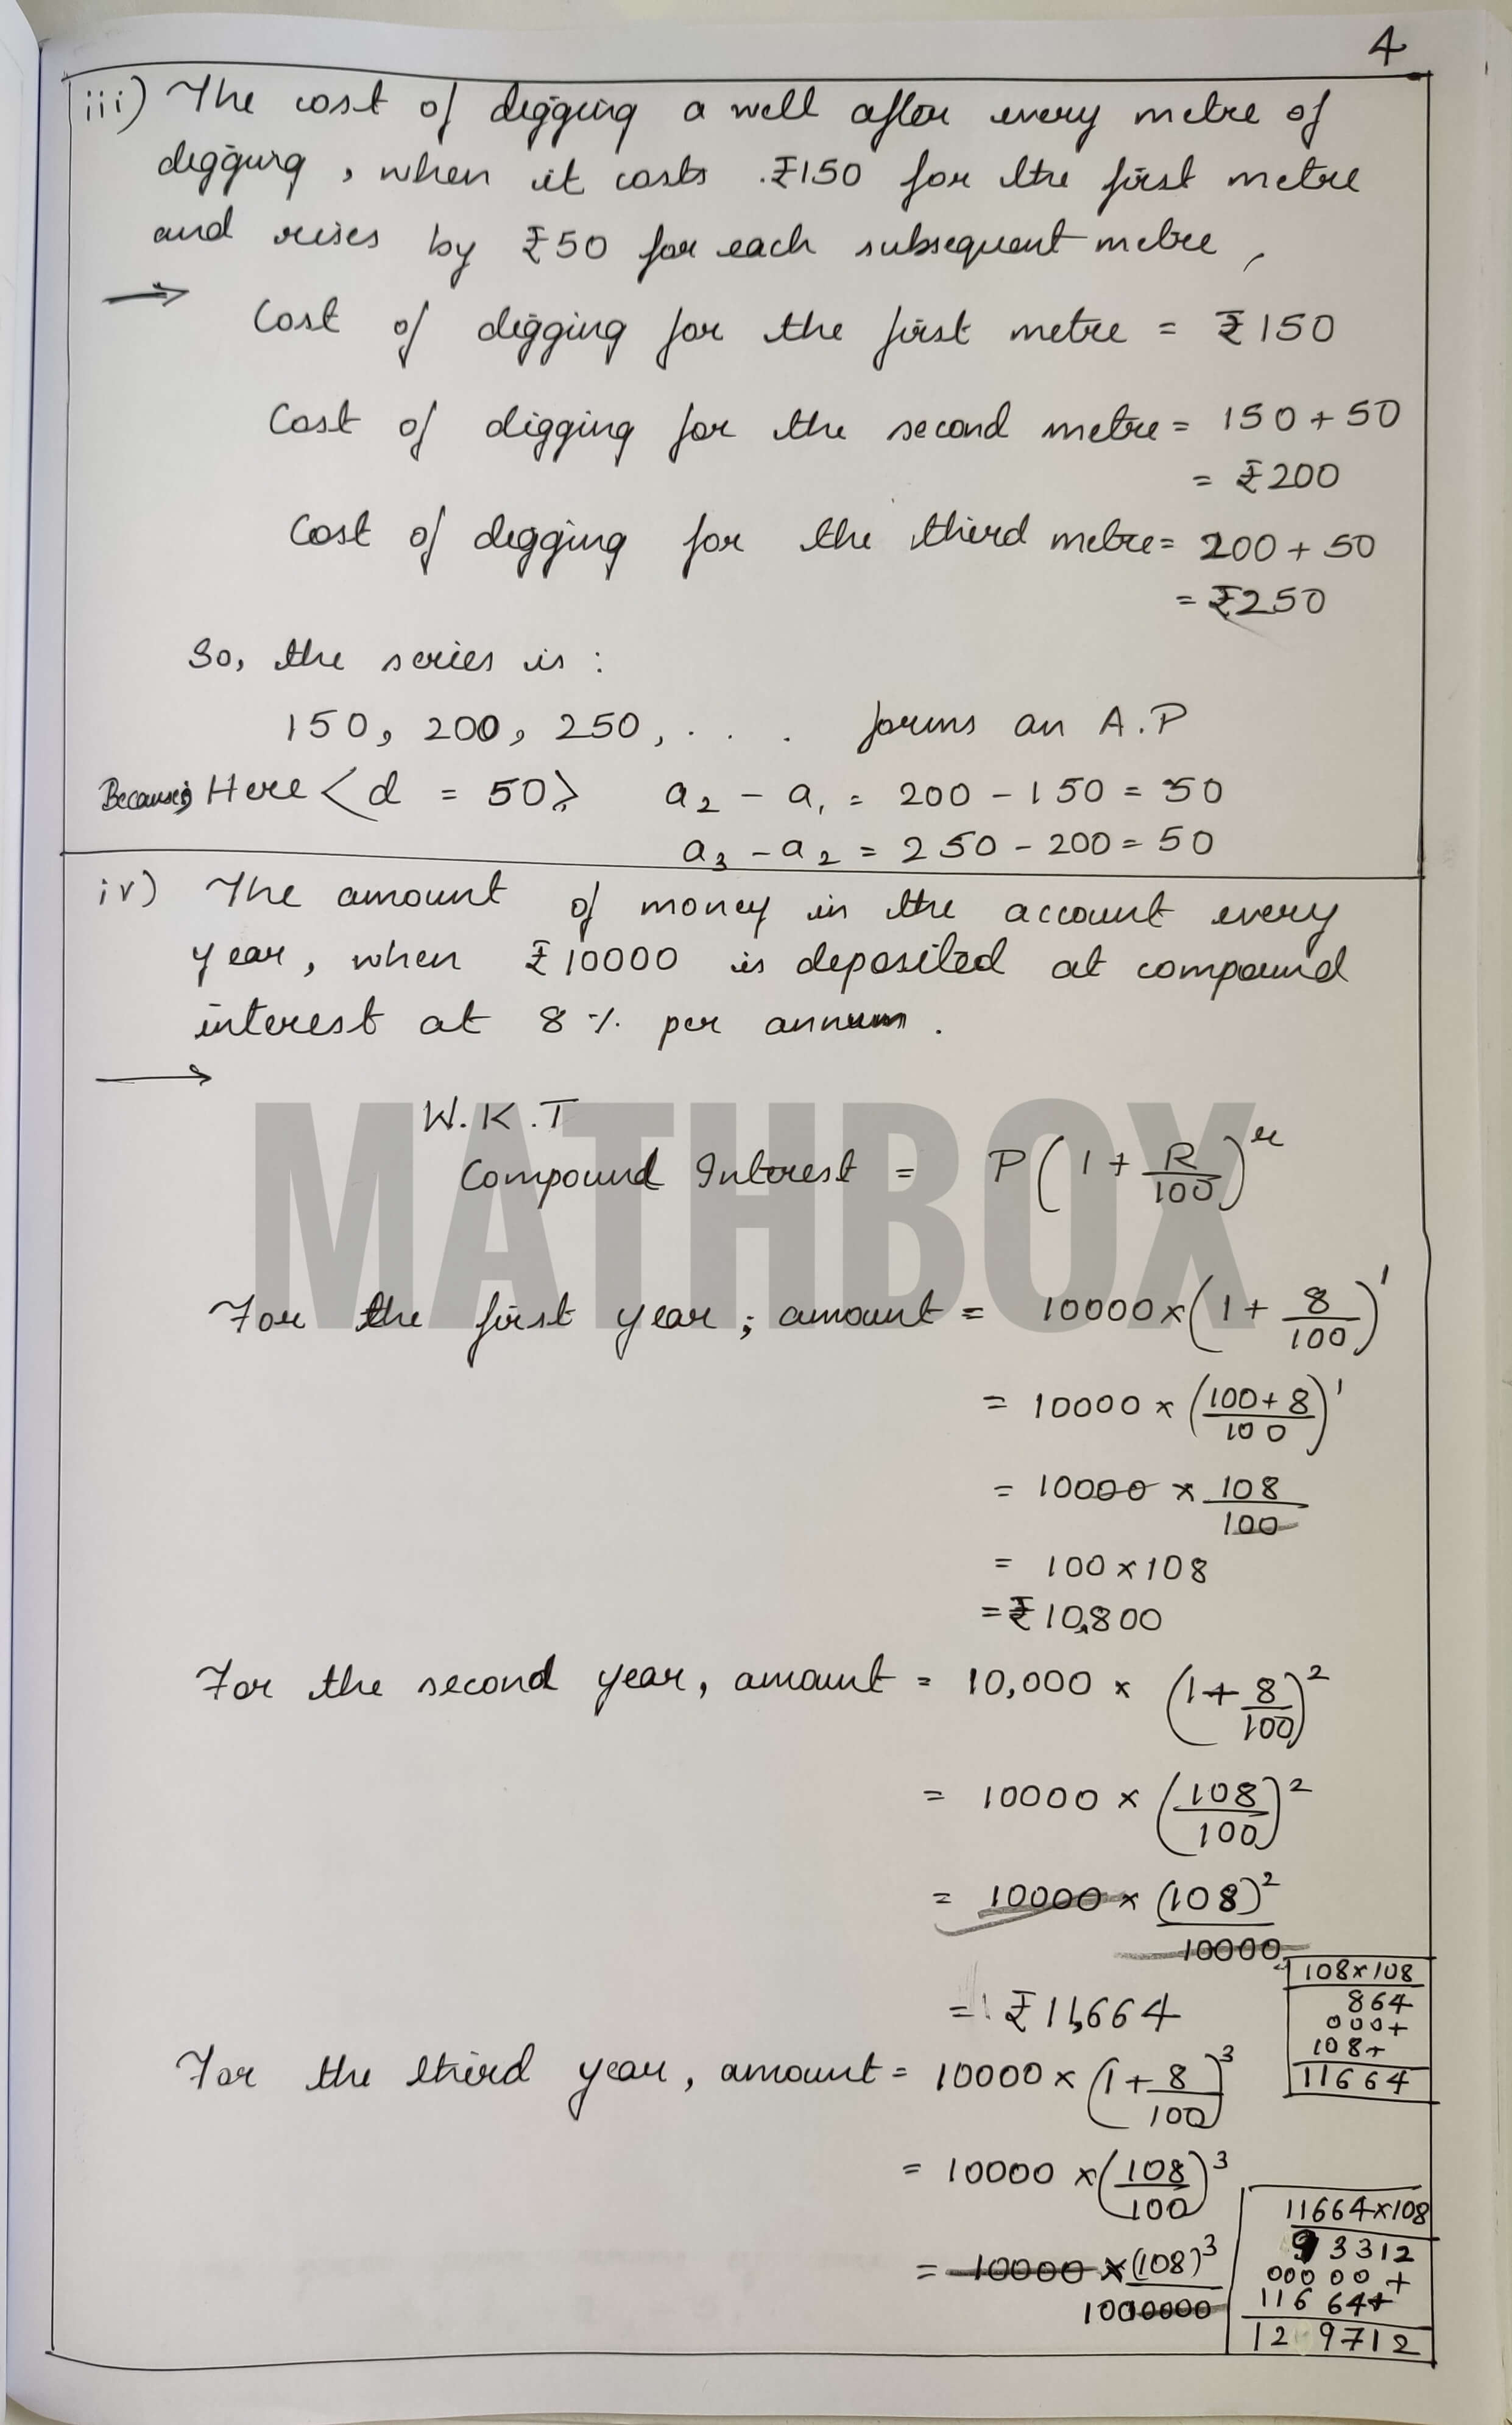 4
iii) The cost of digging a well after every metre of
digging, when it costs ₹150 for the first metre
and rises by ₹50 for each subsequent metre,
→
Cost of digging for the first metre = ₹150
Cost of digging for the second metre = 150 + 50
= ₹200
Cost of digging for the third metre = 200 + 50
= ₹250
So, the series is :
150, 200, 250, . . . forms an A.P
Because, Here <d = 50> a₂ - a₁ = 200 - 150 = 50
a₃ - a₂ = 250 - 200 = 50
iv) The amount of money in the account every
year, when ₹10000 is deposited at compound
interest at 8% per annum.
→
W.K.T
Compound Interest = P(1 + R/100)ⁿ
MATHBOX
For the first year ; amount = 10000 × (1 + 8/100)¹
= 10000 × (100+8/100)¹
= 10000 × 108/100
= 100 × 108
= ₹10,800
For the second year, amount = 10,000 × (1 + 8/100)²
= 10000 × (108/100)²
= 10000 × (108)²/10000
= ₹11,664
108×108
864
000+
108+
11664
For the third year, amount = 10000 × (1 + 8/100)³
= 10000 × (108/100)³
= 10000 × (108)³/1000000
11664×108
93312
00000+
11664+
12 9712